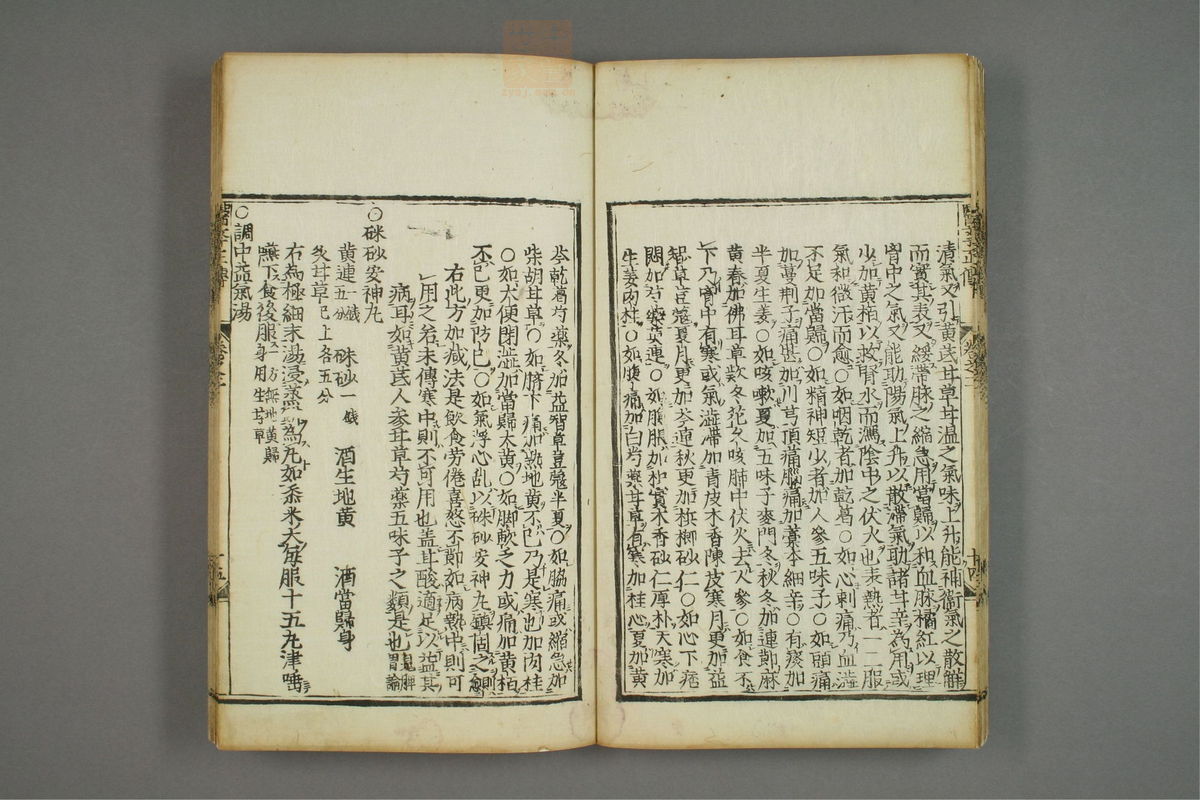 清氣又引黃芪甘草甘温之氣味上升能補衛氣之散觧
而實其表又緩帶脉之縮急用當歸以和血脉橘紅以理
胷中之氣又能助陽氣上升以散滯氣助諸甘辛為用或
少加黃栢以救腎水而瀉陰中之伏火也表熱者一二服
氣和微汗而愈〇如咽乾者加乾葛〇如心刺痛乃血澁
不足加當歸〇如精神短少者加人參五味子〇如頭痛
加蔓荆子痛甚加川芎頂痛腦痛加藁本細辛〇有痰加
半夏生姜〇如咳嗽夏加五味子麥門冬秋冬加連節麻
黃春加佛耳草欵冬花久咳肺中伏火去人參〇如食不
下乃胷中有寒或氣澁滯加青皮木香陳皮寒月更加益
智草豆蔻夏月更加芩連秋更加梹榔砂仁〇如心下痞
悶加芍藥黃連〇如腹脹加枳實木香砂仁厚朴天寒加
生姜肉桂〇如腹痛加白芍藥甘草有寒加桂心夏加黃
芩乾葛芍藥冬加益智草豆蔻半夏〇如脇痛或縮急加
柴胡甘草〇如臍下痛加熟地黃不已乃是寒也加肉桂
〇如大便閉澁加當歸大黃〇如脚軟乏力或痛加黃栢
不已更加防已〇如氣浮心乱以硃砂安神丸鎮固之則愈
右此方加减法是飲食劳倦喜怒不節如病熱中則可
用之若未傳寒中則不可用也盖甘酸適足以益其
病耳如黃芪人參甘草芍藥五味子之類是也脾胃論
〇硃砂安神丸
黃連五分 硃砂一錢 酒生地黃 酒當歸身
炙甘草已上各五分
右為極細末湯浸蒸餅為丸如黍米大每服十五丸津唾
嚥下食後服一方無地黃歸身用生甘草
〇調中益氣湯